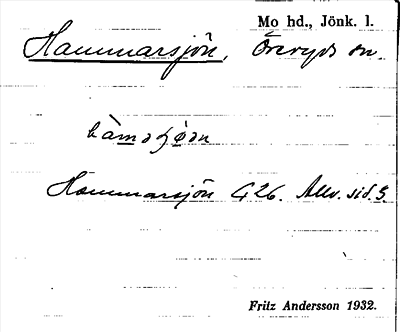 Mo hd., Jönk. l.
Hammarsjön, Öreryds sn
Hammarsjön G26. Allv. sid. 3.
Fritz Andersson 1932.